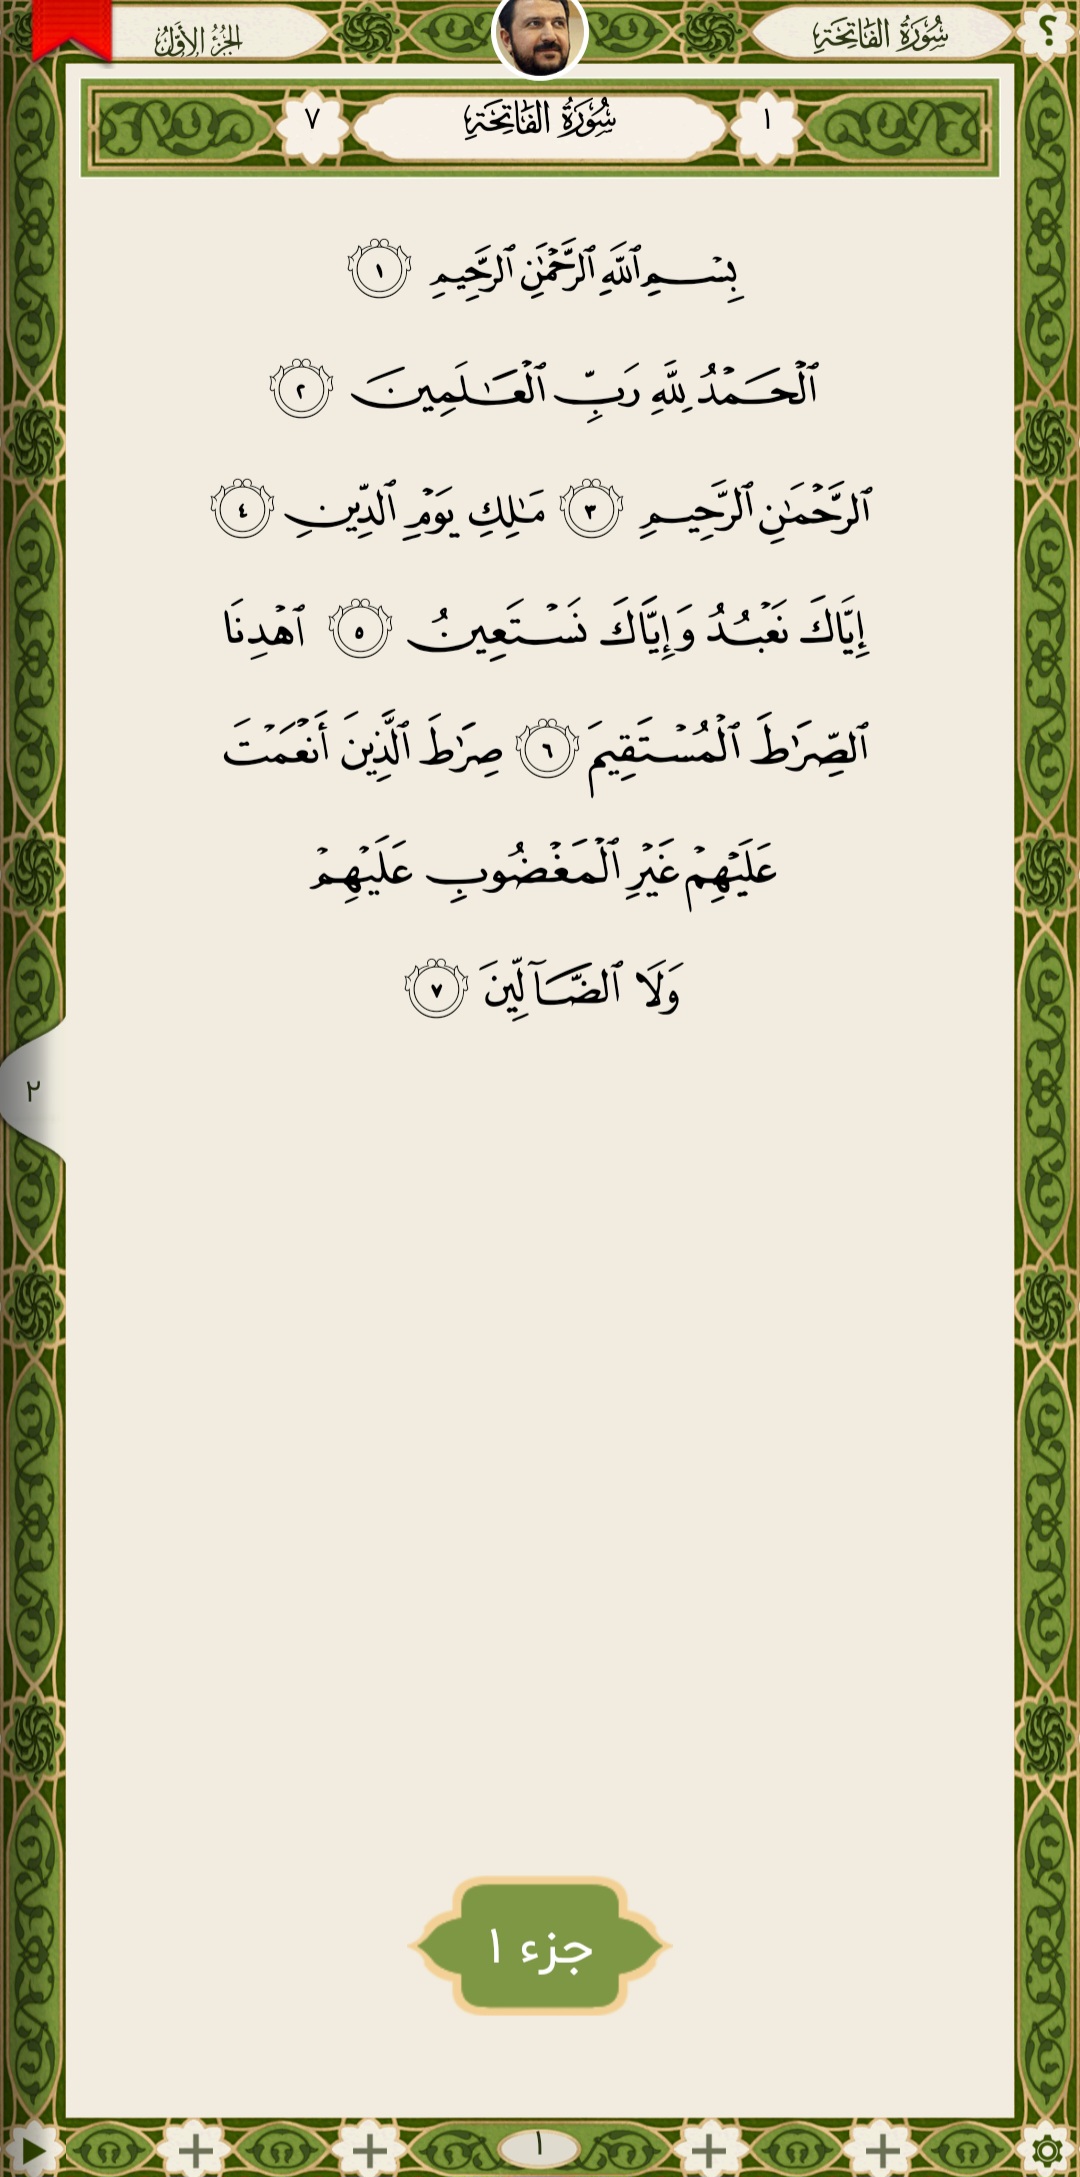 الجُزْءُ الأَوَّلُ
سُورَةُ الفَاتِحَةِ
؟
٧
سُورَةُ الفَاتِحَةِ
١
بِسْمِ ٱللَّهِ ٱلرَّحْمَٰنِ ٱلرَّحِيمِ ١
ٱلْحَمْدُ لِلَّهِ رَبِّ ٱلْعَـٰلَمِينَ ٢
ٱلرَّحْمَـٰنِ ٱلرَّحِيمِ ٣ مَـٰلِكِ يَوْمِ ٱلدِّينِ ٤
إِيَّاكَ نَعْبُدُ وَإِيَّاكَ نَسْتَعِينُ ٥ ٱهْدِنَا
ٱلصِّرَٰطَ ٱلْمُسْتَقِيمَ ٦ صِرَٰطَ ٱلَّذِينَ أَنْعَمْتَ
عَلَيْهِمْ غَيْرِ ٱلْمَغْضُوبِ عَلَيْهِمْ
وَلَا ٱلضَّآلِّينَ ٧
٢
جزء ١
١